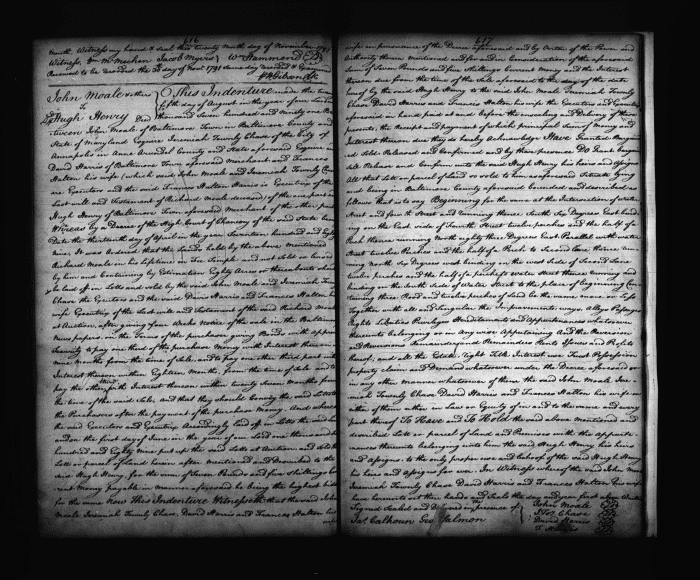 616
month. Witness my hand & seal this twenty ninth day of November 1791
Witness, Wm McMechen Jacob Myers W Hammond
Received to be recorded the 30 day of Nov 1791 same day recorded & Examined
Wm Gibson Clk
John Moale & others
to
Hugh Henry Deed
This Indenture made this twenty
fifth day of August in the year of our Lord one
thousand Seven hundred and Ninety one Be-
tween John Moale of Baltimore Town in Baltimore County and
State of Maryland Esquire Jeremiah Townly Chase of the City of
Annapolis in Anne Arundel County and State aforesaid Esquire and
David Harris of Baltimore Town aforesaid Merchant and Frances
Halton his wife (which said John Moale and Jeremiah Townly Chase
are Executors and the said Frances Halton Harris is Executrix of the
Last will and Testament of Richard Moale deceased) of the one part and
Hugh Henry of Baltimore Town aforesaid Merchant of the other part
Whereas by a Decree of the High Court of Chancery of the said State bearing
Date the thirteenth day of April in the year Seventeen hundred and Eighty
nine It was Ordered that the Lands held by the above mentioned
Richard Moale in his lifetime in Fee Simple and not Sold or
by him and Containing by Estimation Eighty Acres or thereabouts should
be laid off in Lotts and sold by the said John Moale and Jeremiah Townly
Chase the Executors and the said David Harris and Frances Halton his
wife Executrix of the Last will and Testament of the said Richard Moale
at Auction, after giving four weeks notice of the sale in the Baltimore
News papers, on the Terms of the purchasers giving Bonds with approved
Security to pay one third of the purchase money with Interest thereon within
nine months from the time of sale, and to pay one other third part with
Interest thereon within Eighteen months, from the time of sale and to
pay the other Interest thereon within twenty seven months from
the time of the said sale, and that they should Convey the said Lotts to
the Purchasers after the payment of the purchase money. And whereas
the said Executors and Executrix Accordingly laid off in Lotts the said land
and on the first day of June in the year of our Lord one thousand Seven
hundred and Eighty nine put up the said Lotts at Auction and sold the
Lott or parcel of Land herein after mentioned and described to the
said Hugh Henry for the sum of Seven Pounds and five shillings cur-
rent Money payable in manner aforesaid he being the highest bidder
for the same Now This Indenture Witnesseth that the said John
Moale Jeremiah Townly Chase, David Harris and Frances Halton his
wife
617
wife in pursuance of the Decree aforesaid and by virtue of the Power and
Authority therein mentioned and for and in Consideration of the aforesaid
Sum of Seven Pounds and five shillings Current Money and the Interest
thereon due from the time of the Sale aforesaid to the day of the date
here of by the said Hugh Henry to the said John Moale Jeremiah Townly
Chase David Harris and Frances Halton his wife the Executors and Executrix
aforesaid in hand paid at and before the ensealing and Delivery of these
presents, the receipt and payment of which principal Sum of Money and
Interest thereon due they do hereby acknowledge Have Granted Bargained
and Sold Released and Confirmed and by these presents Do Grant Bargain
Sell Release and Confirm unto the said Hugh Henry his heirs and Assigns
All that Lott or parcel of Land so sold to him as aforesaid Situate lying
and being in Baltimore County aforesaid bounded and described as
follows that is to say Beginning for the same at the Intersection of Water
Street and fourth Street and running thence South Six Degrees East bind-
ing on the East side of Fourth Street twelve perches and the half of a
Perch thence running North eighty three Degrees East Parallel with water
Street twelve Perches and the half of a Perch to Second Lane thence run-
ning North Six Degrees west binding on the west side of Second Lane
twelve perches and the half of a perch to water Street thence running and
binding on the South side of Water Street to the place of beginning Con-
taining three Rood and twelve perches of Land be the same more or less
Together with all and Singular the Improvements ways Alleys Passages
Rights Liberties Privileges Hereditaments and Appurtenances whatsoever
thereunto belonging or in any wise Appertaining And the Reversion
and Reversions Remainder and Remainders Rents Issues and Profits
thereof, and all the Estate, Right Title Interest use Trust Possession
property claim and Demand whatsoever under the Decree aforesaid or
in any other manner whatsoever of them the said John Moale Jere-
miah Townly Chase David Harris and Frances Halton his wife or
either of them either in Law or Equity of in and to the same and every
part thereof To Have and To Hold the said above mentioned and
described Lott or parcel of Land and Premises with the appurte-
nances thereunto belonging unto him the said Hugh Henry, his heirs
and assigns to the only proper use and behoof of the said Hugh Henry
his heirs and assigns for ever. In Witness where of the said John Moale
Jeremiah Townly Chase David Harris and Frances Halton his wife
have hereunto set their hands and Seals the day and year first above written
Signed Sealed and Delivered in presence of
Jas Calhoun Geo Salmon
John Moale
J Tos Chase
David Harris
F H Harris